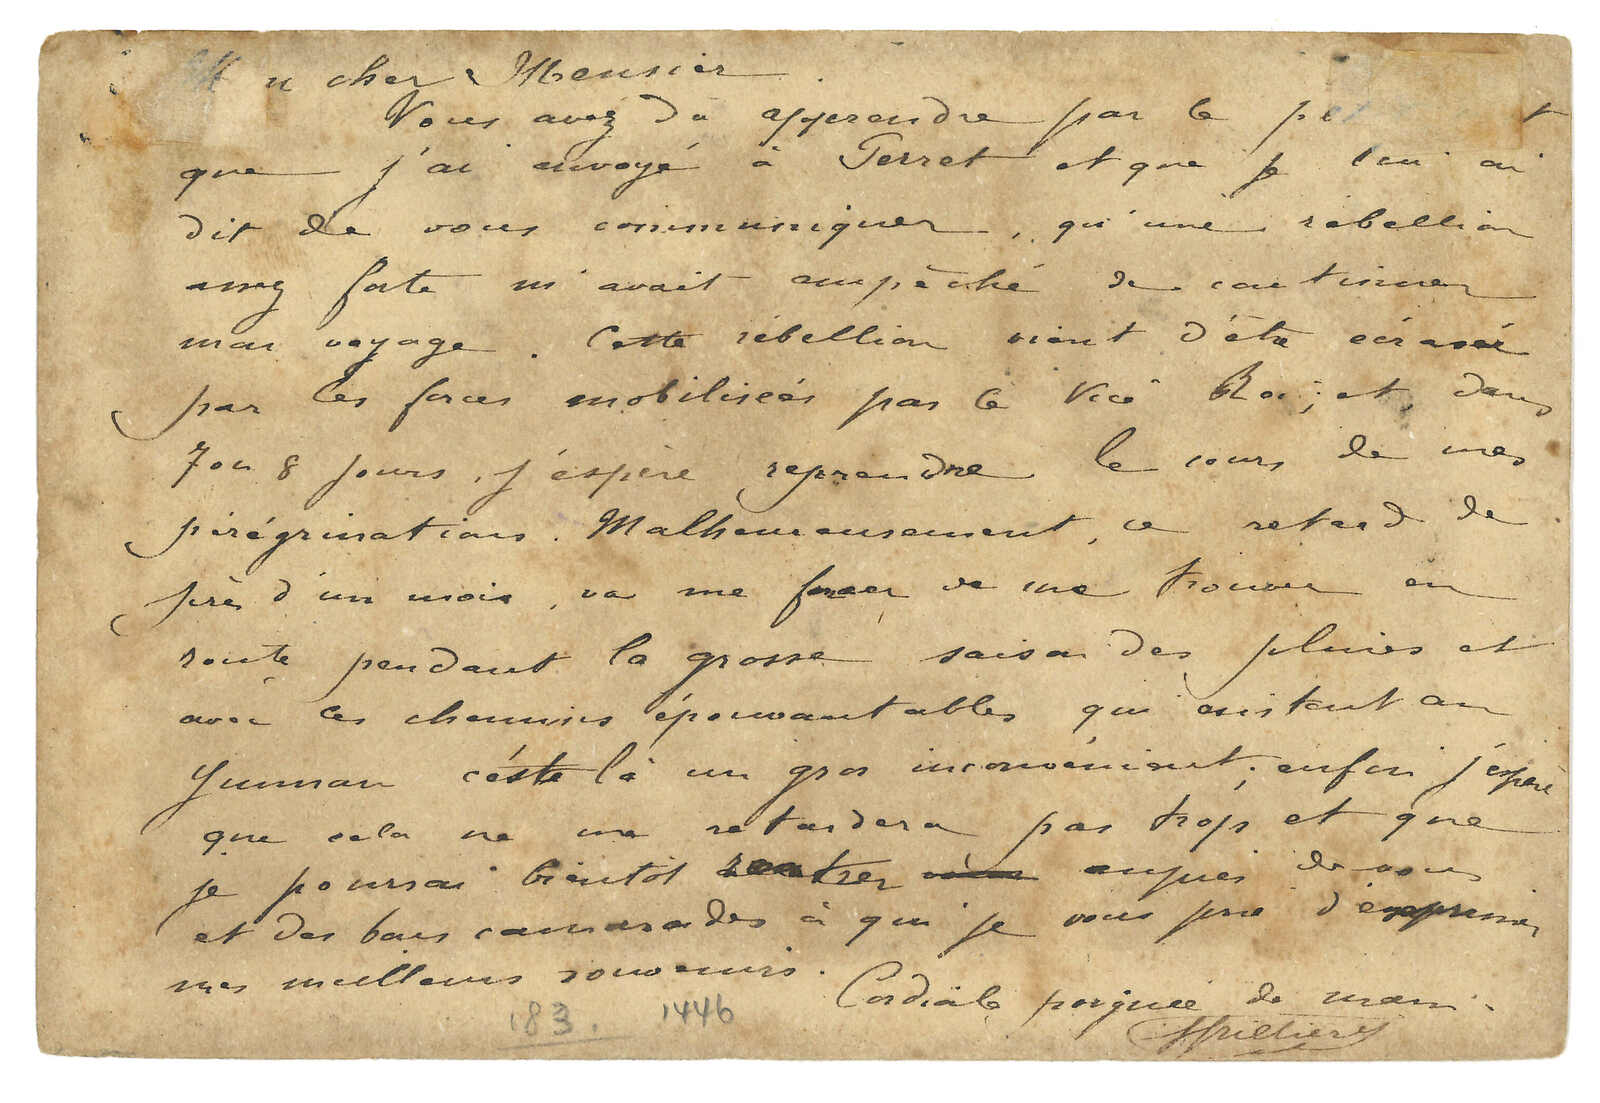 u cher Meusnier
Vous avez dû apprendre par le
que j'ai envoyé à Perret et que je lui ai
dit de vous communiquer, qu'une rébellion
assez forte m'avait empêché de continuer
mon voyage. Cette rébellion vient d'être écrasée
par les forces mobilisées par le Vice Roi; et, dans
7 ou 8 jours, j'espère reprendre le cours de mes
pérégrinations. Malheureusement, ce retard de
près d'un mois, va me forcer de me trouver en
route pendant la grosse saison des pluies et
avec les chemins épouvantables qui existent au
Yunnan c'est là un gros inconvénient; enfin j'espère
que cela ne me retardera pas trop et que
je pourrai bientôt rentrer auprès de vous
et des bons camarades à qui je vous prie d'exprimer
mes meilleurs souvenirs.
Cordiale poignée de main.
183. 1446